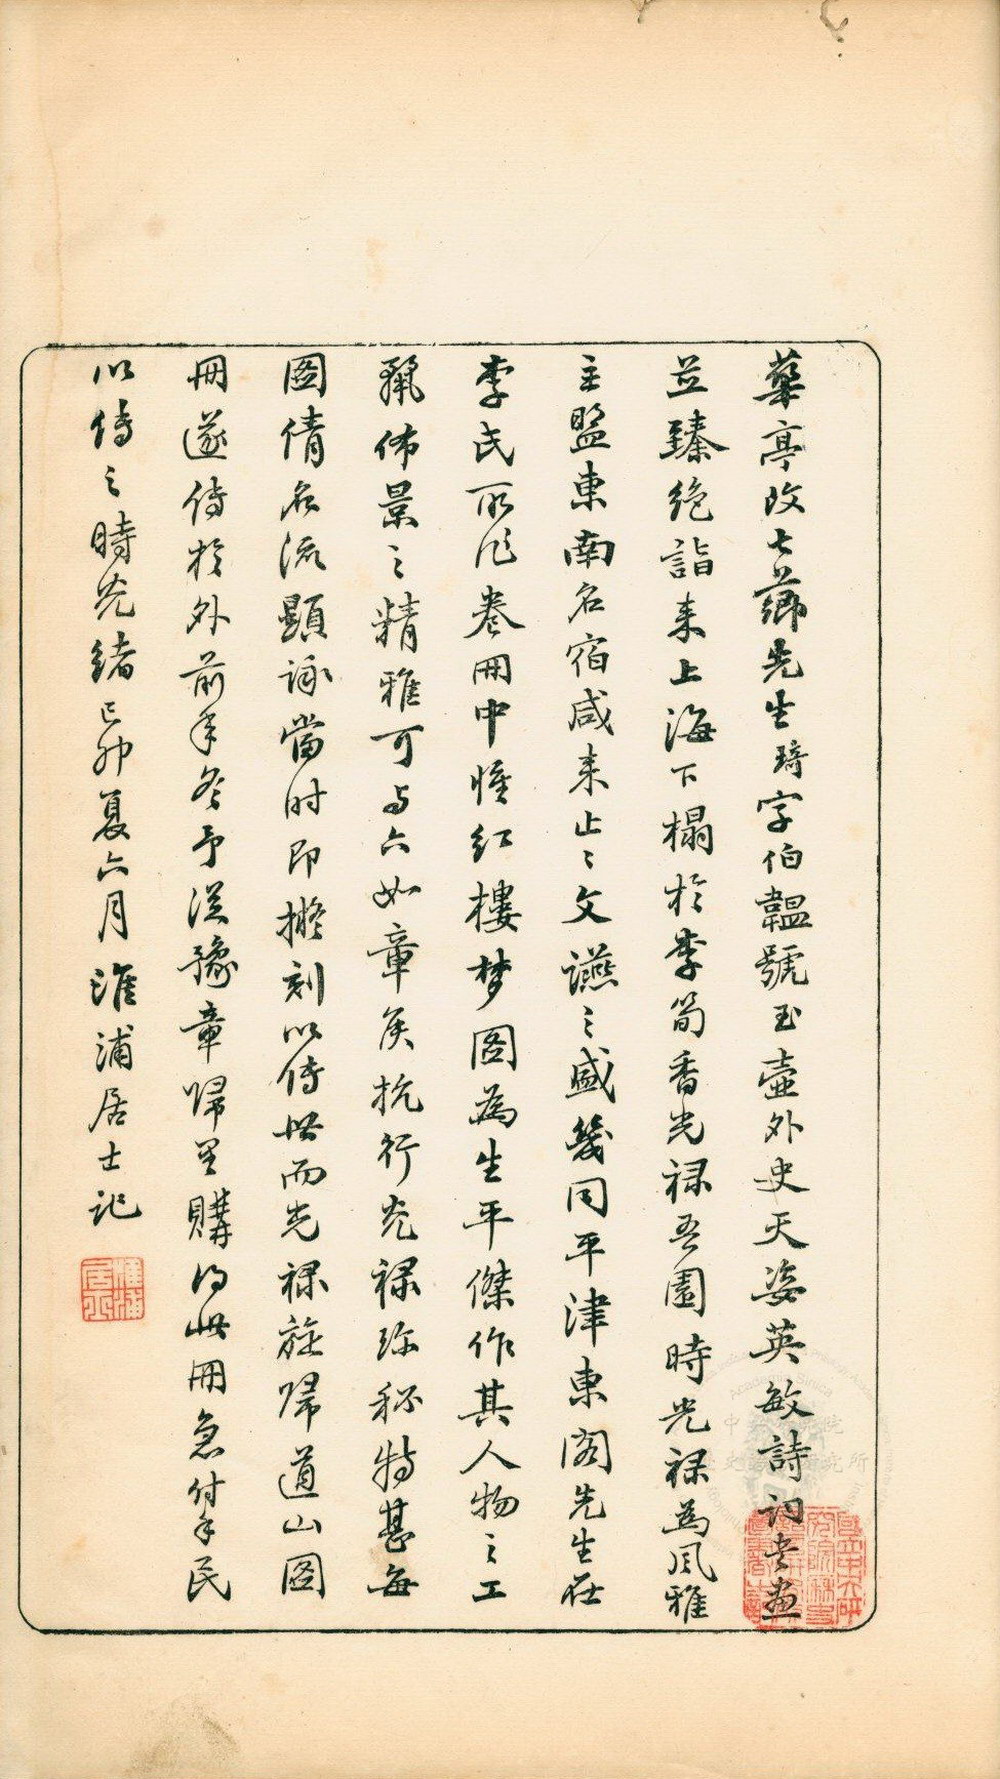 華亭改七薌先生琦字伯韞號玉壺外史天姿英敏詩詞書畫
並臻絕詣來上海下榻於李筍香光祿吾園時光祿為風雅
主盟東南名宿咸來止止文讌之盛幾同平津東閣先生在
李氏所作卷冊中惟紅樓夢圖為生平傑作其人物之工
麗佈景之精雅可与六如章矦抗行光祿珎秘特甚每
圖倩名流題詠當时即擬刻以傳世而光祿旋歸道山圖
冊遂傳於外前年冬予從豫章歸里購得此冊急付手民
以傳之時光緒己卯夏六月淮浦居士記
淮浦居士